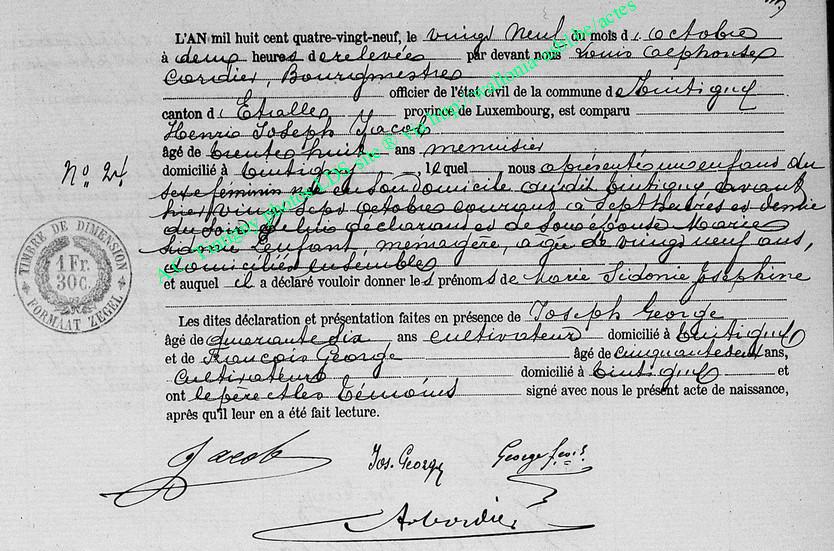 L'AN mil huit cent quatre-vingt-neuf, le vingt neuf du mois d'octobre
à deux heures de relevée par devant nous Louis Alphonse
Cordier, Bourgmestre
officier de l'état civil de la commune de Tintigny
canton d'Etalle province de Luxembourg, est comparu
Henri Joseph Jacob
âgé de trente huit ans menuisier
N° 24
domicilié à Tintigny, lequel nous a présenté un enfant du
sexe féminin né en son domicile audit Tintigny avant
hier vingt sept octobre courant à sept heures et demie
du soir de lui déclarant et de son épouse Marie
Sidonie Lenfant, ménagère, agée de vingt neuf ans,
domiciliés ensemble
et auquel il a déclaré vouloir donner les prénoms de Marie Sidonie Joséphine
Les dites déclaration et présentation faites en présence de Joseph George
âgé de quarante six ans cultivateur domicilié à Tintigny
et de François George âgé de cinquante sept ans,
cultivateur domicilié à Tintigny et
ont le père et les témoins signé avec nous le présent acte de naissance,
après qu'il leur en a été fait lecture.
Jacob Jos. George George
TIMBRE DE DIMENSION
1 Fr.
30 C.
FORMAAT ZEGEL